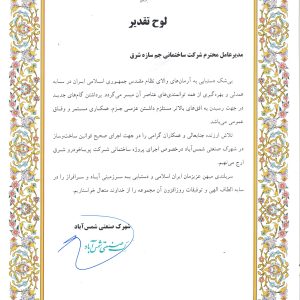 لوح تقدیر
مدیرعامل محترم شرکت ساختمانی جم سازه شرق
بی‌شک دستیابی به آرمان‌های والای نظام مقدس جمهوری اسلامی ایران در سایه
همدلی و بهره‌گیری از همه توانمندی‌های عناصر آن میسر می‌گردد. برداشتن گام‌های جدید
در جهت رسیدن به افق‌های بالاتر مستلزم داشتن عزمی جزم، همکاری مستمر و وفاق
عمومی می‌باشد.
تلاش ارزنده جنابعالی و همکاران گرامی را در جهت اجرای صحیح قوانین ساخت‌وساز
در شهرک صنعتی شمس‌آباد درخصوص اجرای پروژه ساختمانی شرکت پوساخودرو شرق
ارج می‌نهیم.
سربلندی میهن عزیزمان ایران اسلامی و دستیابی به سرزمینی آباد و سرافراز را در
سایه الطاف الهی و توفیقات روزافزون آن مجموعه را از خداوند متعال خواستاریم.
شهرک صنعتی شمس‌آباد
شهرک صنعتی شمس‌آباد